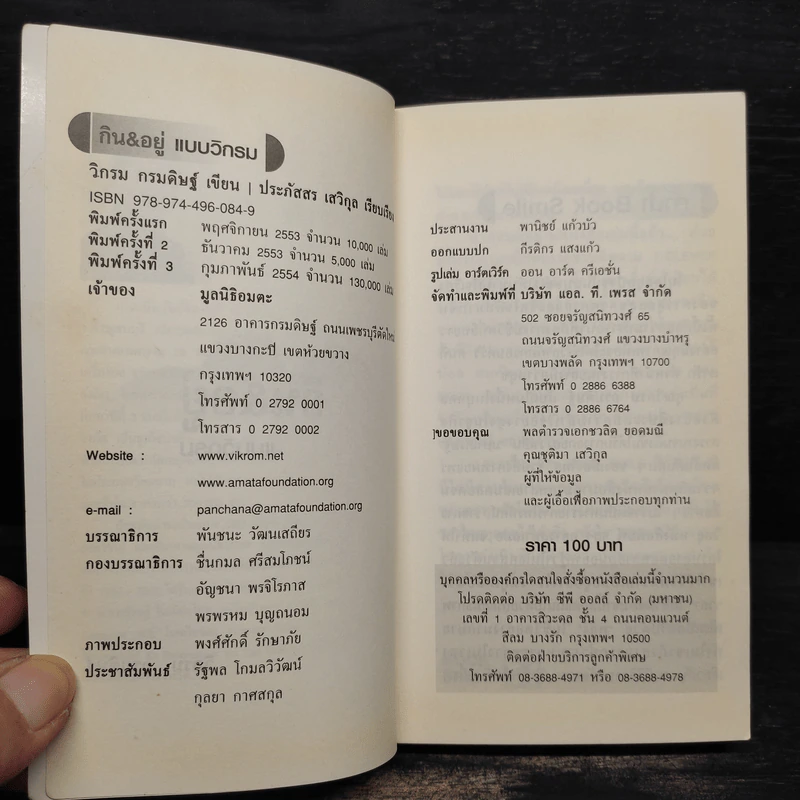 กิน&อยู่ แบบวิกรม
วิกรม กรมดิษฐ์ เขียน | ประภัสสร เสวิกุล เรียบเรียง
ISBN 978-974-496-084-9
พิมพ์ครั้งแรก พฤศจิกายน 2553 จำนวน 10,000 เล่ม
พิมพ์ครั้งที่ 2 ธันวาคม 2553 จำนวน 5,000 เล่ม
พิมพ์ครั้งที่ 3 กุมภาพันธ์ 2554 จำนวน 130,000 เล่ม
เจ้าของ มูลนิธิอมตะ
2126 อาคารกรมดิษฐ์ ถนนเพชรบุรีตัดใหม่
แขวงบางกะปิ เขตห้วยขวาง
กรุงเทพฯ 10320
โทรศัพท์ 0 2792 0001
โทรสาร 0 2792 0002
Website : www.vikrom.net
www.amatafoundation.org
e-mail : panchana@amatafoundation.org
บรรณาธิการ พันชนะ วัฒนเสถียร
กองบรรณาธิการ ชื่นกมล ศรีสมโภชน์
อัญชนา พรจิโรภาส
พรพรหม บุญถนอม
ภาพประกอบ พงศ์ศักดิ์ รักษาภัย
ประชาสัมพันธ์ รัฐพล โกมลวิวัฒน์
กุลยา กาศสกุล
ประสานงาน พานิชย์ แก้วบัว
ออกแบบปก กีรติกร แสงแก้ว
รูปเล่ม อาร์ตเวิร์ค ออน อาร์ต ครีเอชั่น
จัดทำและพิมพ์ที่ บริษัท แอล. ที. เพรส จำกัด
502 ซอยจรัญสนิทวงศ์ 65
ถนนจรัญสนิทวงศ์ แขวงบางบำหรุ
เขตบางพลัด กรุงเทพฯ 10700
โทรศัพท์ 0 2886 6388
โทรสาร 0 2886 6764
]ขอขอบคุณ พลตำรวจเอกชวลิต ยอดมณี
คุณชุติมา เสวิกุล
ผู้ที่ให้ข้อมูล
และผู้เอื้อเฟื้อภาพประกอบทุกท่าน
ราคา 100 บาท
บุคคลหรือองค์กรใดสนใจสั่งซื้อหนังสือเล่มนี้จำนวนมาก
โปรดติดต่อ บริษัท ซีพี ออลล์ จำกัด (มหาชน)
เลขที่ 1 อาคารสิวะดล ชั้น 4 ถนนคอนแวนต์
สีลม บางรัก กรุงเทพฯ 10500
ติดต่อฝ่ายบริการลูกค้าพิเศษ
โทรศัพท์ 08-3688-4971 หรือ 08-3688-4978